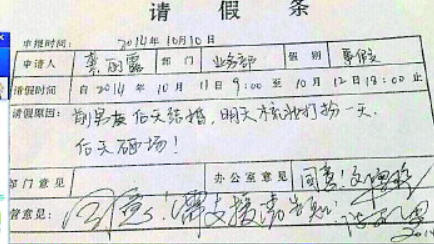 请假条
申报时间： 2014年10月10日
申请人 龚丽露 部门 业务部 假别 事假
请假时间 自 2014年 10月 11日 9:00 至 10月 12日 18:00 止
请假原因： 前男友后天结婚，明天梳妆打扮一天，
后天砸场！
部门意见 办公室意见 同意！
管意见： 同意！需支援请告知！